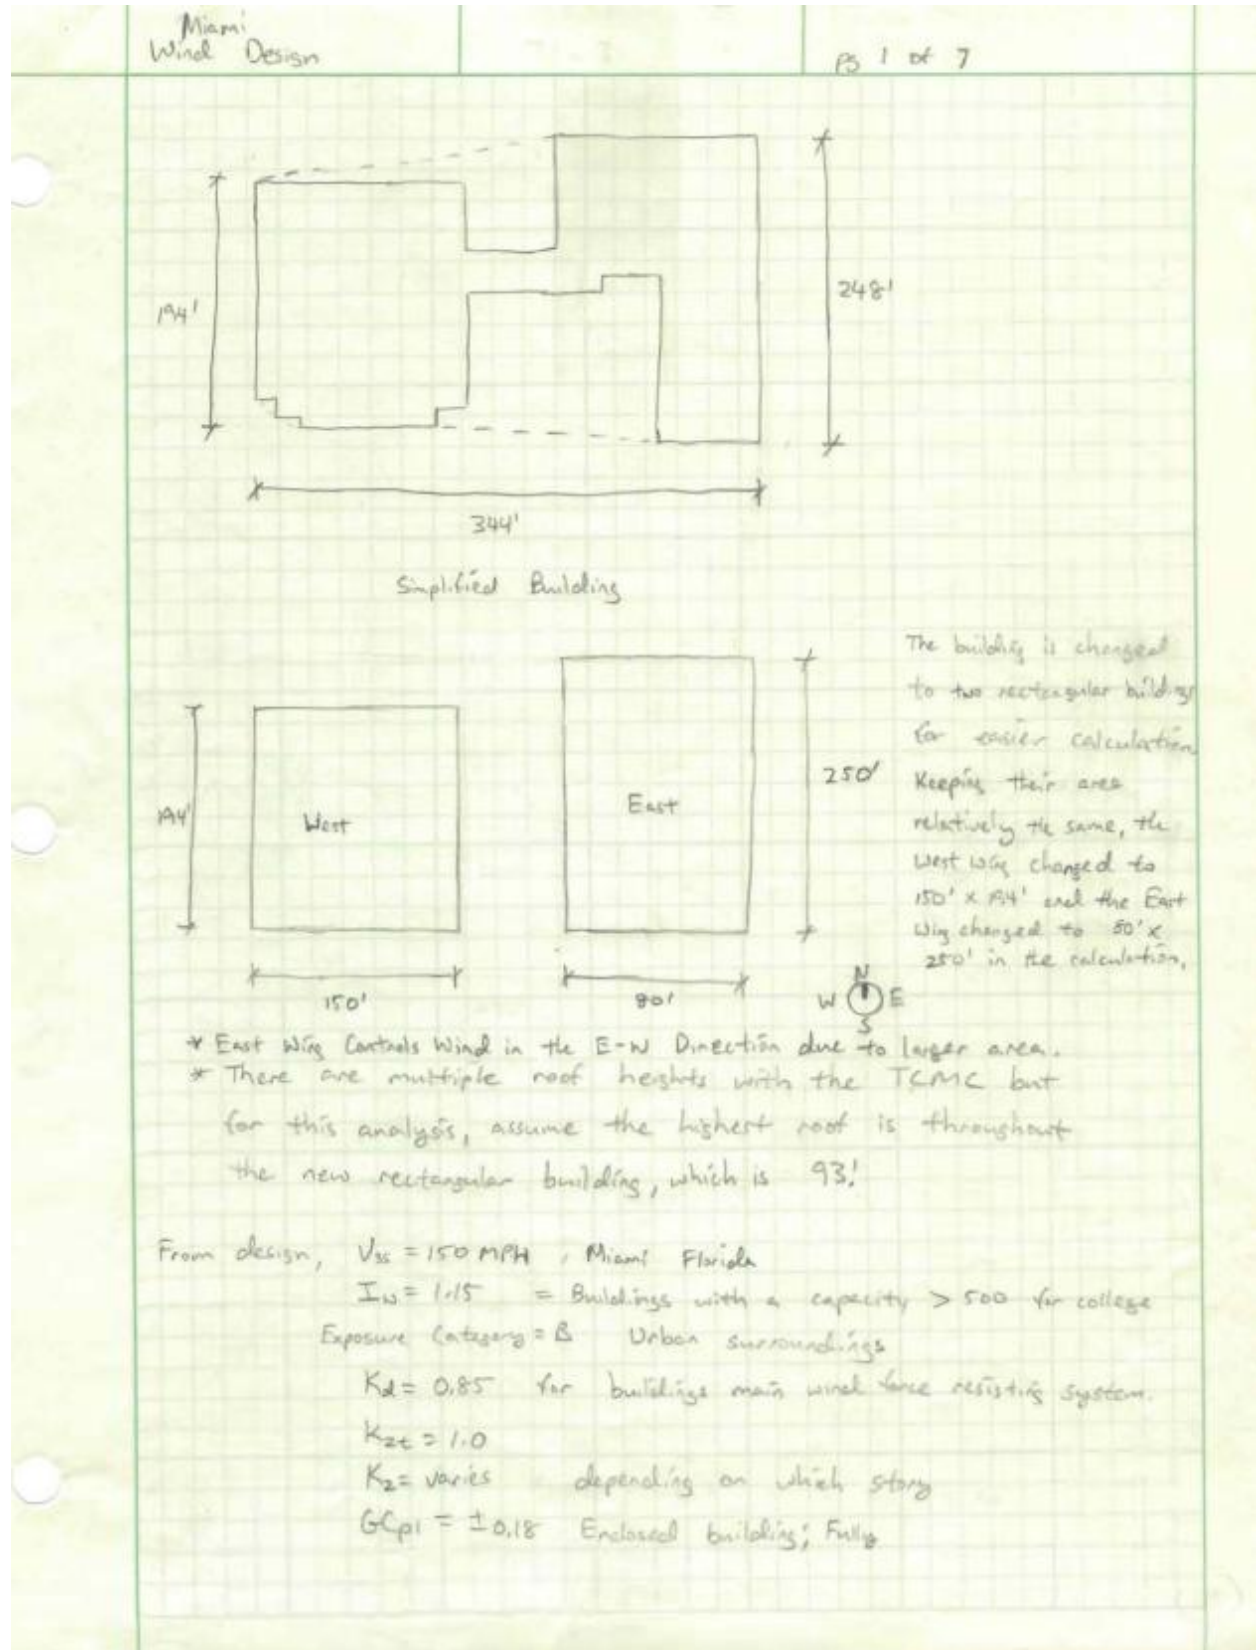 Miami
Wind Design
pg 1 of 7
194'
248'
344'
Simplified Building
The building is changed
to two rectangular buildings
for easier calculation
Keeping their area
relatively the same, the
West Wing changed to
150' x 194' and the East
Wing changed to 80' x
250' in the calculation.
194'
West
East
250'
150'
80'
N
W E
S
* East Wing Controls Wind in the E-W Direction due to larger area.
* There are multiple roof heights with the TCMC but
for this analysis, assume the highest roof is throughout
the new rectangular building, which is 93'.
From design, V3s = 150 MPH, Miami Florida
Iw = 1.15 = Buildings with a capacity > 500 for college
Exposure Category = B Urban surroundings
Kd = 0.85 for buildings main wind force resisting system.
Kzt = 1.0
Kz = varies depending on which story
GCpi = ±0.18 Enclosed building; Fully